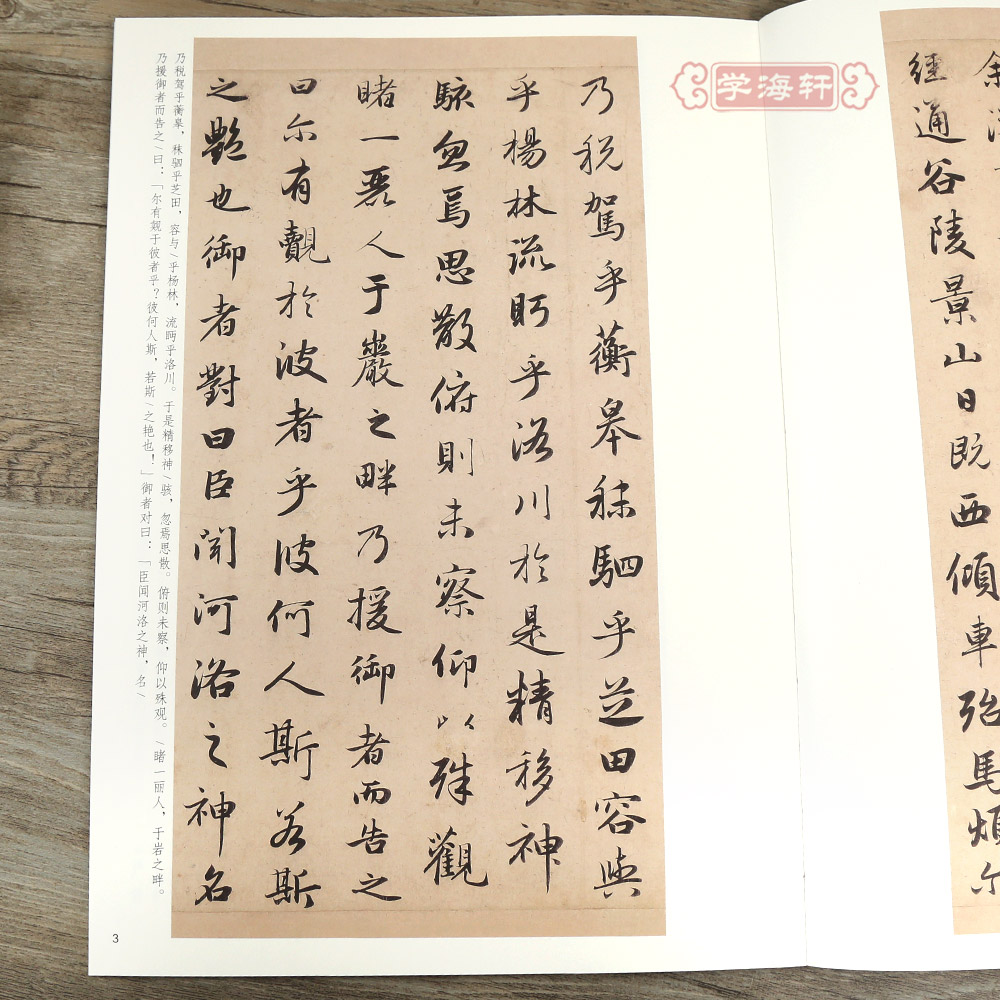 学海轩
余
經通谷陵景山日既西傾車殆馬煩尔
乃税駕乎蘅皋秣駟乎芝田容與
乎楊林流眄乎洛川於是精移神
駭忽焉思散俯則未察仰以殊觀
睹一麗人于巖之畔乃援御者而告之
曰尔有覿於彼者乎彼何人斯若斯
之艷也御者對曰臣聞河洛之神名
乃税驾乎蘅皋，秣驷乎芝田，容与\乎杨林，流眄乎洛川。于是精移神\骇，忽焉思散。俯则未察，仰以殊观。\睹一丽人，于岩之畔。
乃援御者而告之\曰：「尔有觌于彼者乎？彼何人斯，若斯\之艳也！」御者对曰：「臣闻河洛之神，名\
3